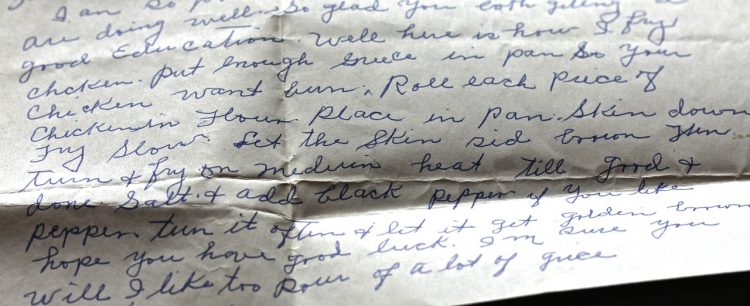 I am so
are doing well. So glad you both getting a
good Education. Well here is how I fry
chcken. put enough greece in pan so your
Chicken want burn. Roll each piece of
Chicken in flour place in pan. Skin down
Fry slow. Let the skin sid brown then
turn & fry on medium heat till good &
done Salt. & add black pepper if you like
pepper. turn it often & let it get golden brown
hope you have good luck. I'm sure you
will I like too pour of a lot of grice